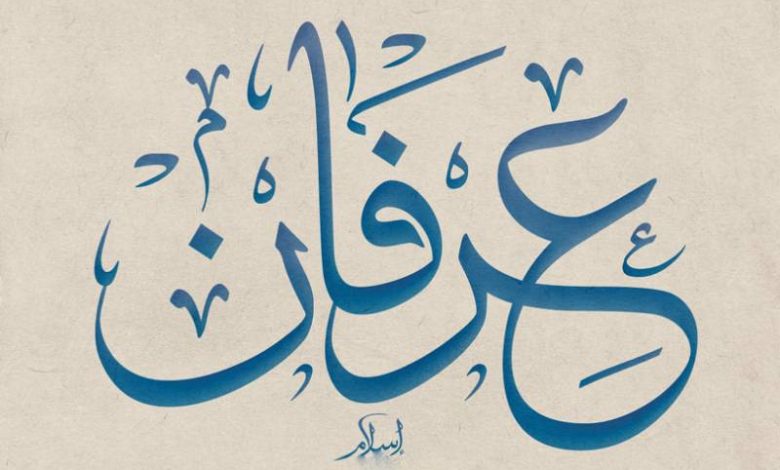 عِرفَان
إسلام